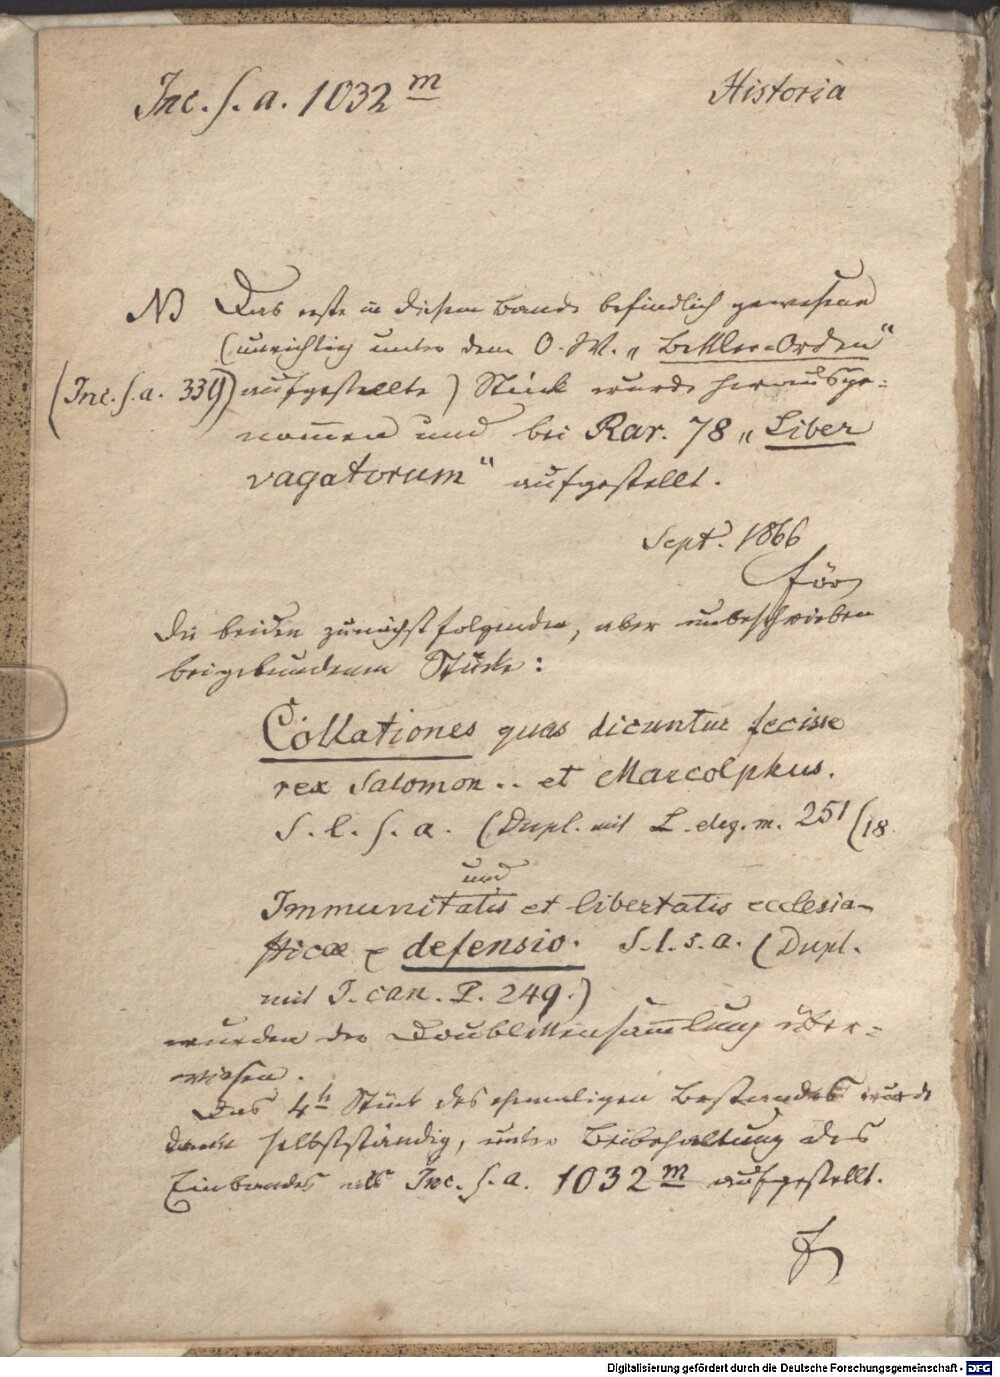 Inc. s. a. 1032 m
Historia
NB Das erste in diesem Bande befindlich gewesene
(unrichtig unter dem O. W. „Bettler-Orden“
(Inc. s. a. 339) aufgestellte) Stück wurde herausge-
nom̄en und bei Rar. 78 „Liber
vagatorum“ aufgestellt.
Sept. 1866
För
Die beiden zunächst folgenden, aber unbeschrieben
beigebundenen Stücke:
Collationes quas dicuntur fecisse
rex Salomon .. et Marcolphus.
S. l. s. a. (Dupl. mit L. eleg. m. 251 (18.
und
Immunitatis et libertatis ecclesia-
sticae defensio. S. l. s. a. (Dupl.
mit J. can. P. 249.)
wurden der Doublettensam̄lung über-
wiesen.
Das 4t Stück des ehemaligen Bestandes wurde
dann selbstständig, unter Beibehaltung des
Einbandes als Inc. s. a. 1032 m aufgestellt.
F
Digitalisierung gefördert durch die Deutsche Forschungsgemeinschaft - DFG